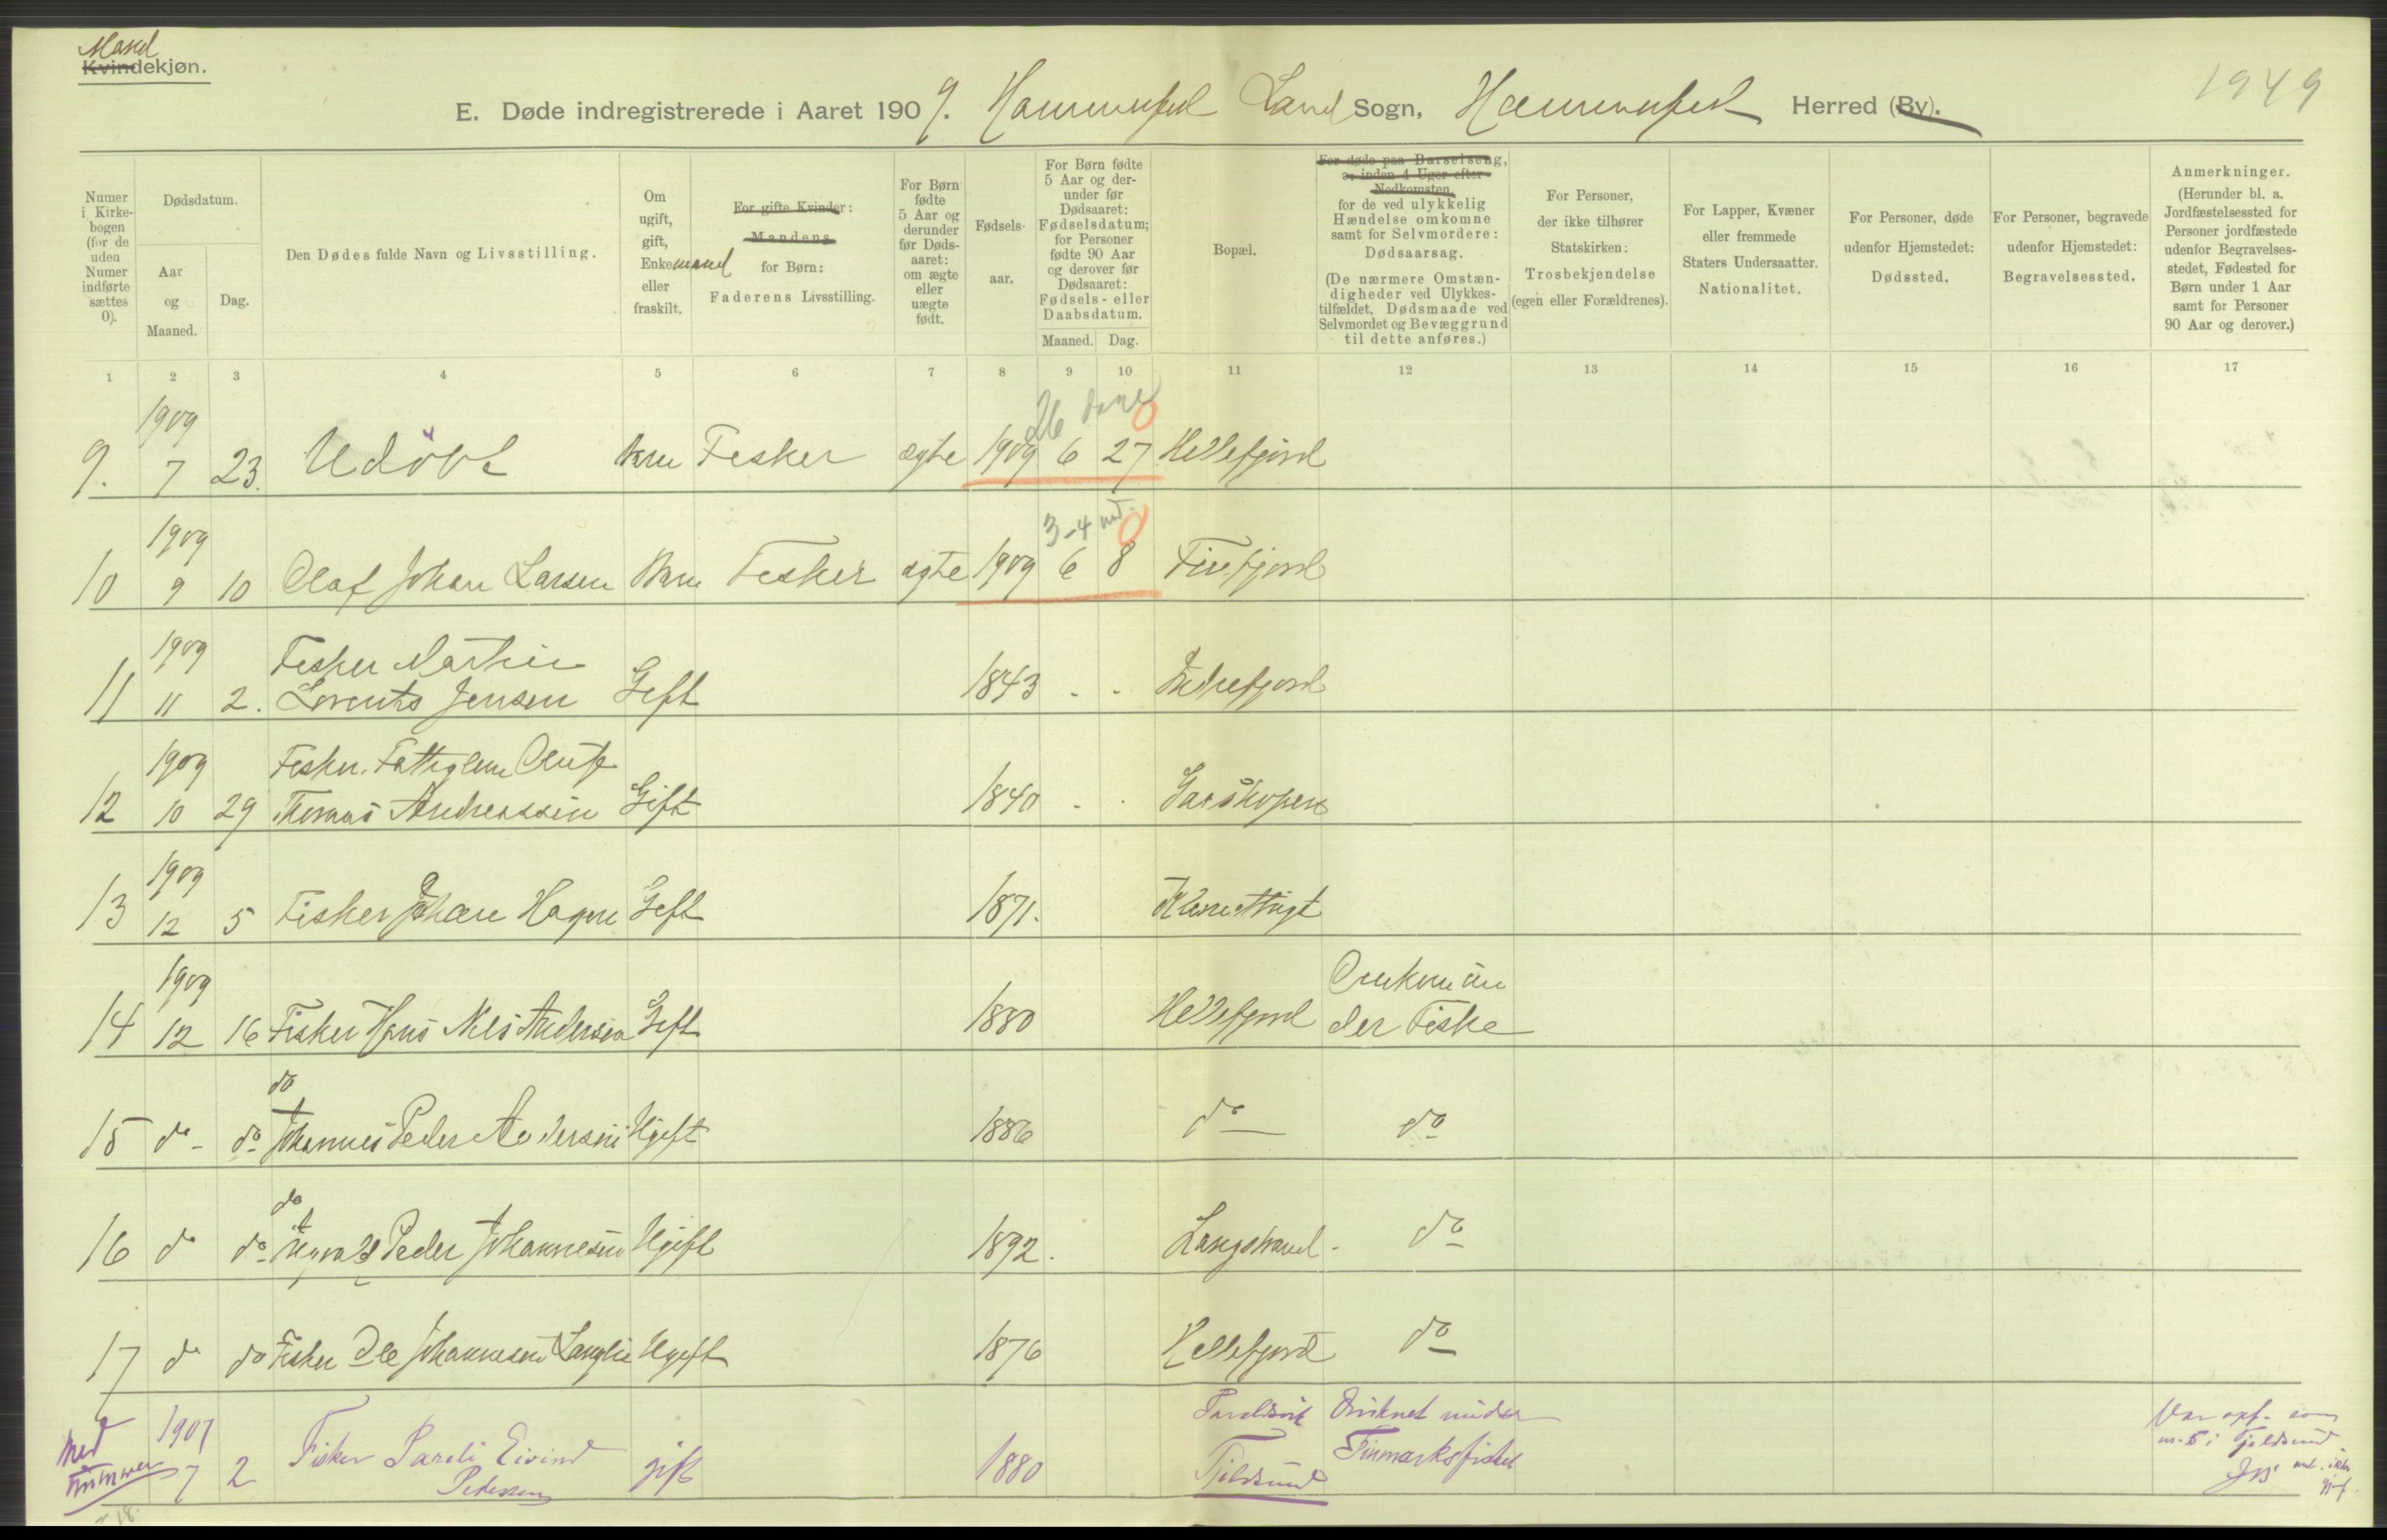 Mand
Kvindekjøn.
E. Døde indregistrerede i Aaret 1909. Hammerfest Land Sogn, Hammerfest Herred (By).
1949
Numer i Kirkebogen (for de uden Numer indførte sættes 0).
Dødsdatum.
Aar og Maaned.
Dag.
Den Dødes fulde Navn og Livsstilling.
Om ugift, gift, Enkemand eller fraskilt.
For gifte Kvinder: Mandens for Børn: Faderens Livsstilling.
For Børn fødte 5 Aar og derunder før Dødsaaret: om ægte eller uægte født.
Fødselsaar.
For Børn fødte 5 Aar og derunder før Dødsaaret: Fødselsdatum; for Personer fødte 90 Aar og derover før Dødsaaret: Fødsels- eller Daabsdatum.
Maaned. Dag.
Bopæl.
For døde paa Barselseng, ɔ: inden 4 Uger efter Nedkomsten, for de ved ulykkelig Hændelse omkomne samt for Selvmordere: Dødsaarsag. (De nærmere Omstændigheder ved Ulykkestilfældet, Dødsmaade ved Selvmordet og Bevæggrund til dette anføres.)
For Personer, der ikke tilhører Statskirken: Trosbekjendelse (egen eller Forældrenes).
For Lapper, Kvæner eller fremmede Staters Undersaatter. Nationalitet.
For Personer, døde udenfor Hjemstedet: Dødssted.
For Personer, begravede udenfor Hjemstedet: Begravelsessted.
Anmerkninger. (Herunder bl. a. Jordfæstelsessted for Personer jordfæstede udenfor Begravelsesstedet, Fødested for Børn under 1 Aar samt for Personer 90 Aar og derover.)
1 2 3 4 5 6 7 8 9 10 11 12 13 14 15 16 17
26 dage 0
9. 1909 7 23. Udøbt Barn Fisker ægte 1909 6 27 Hellefjord
3-4 md. 0
10 1909 9 10 Olaf Johan Larsen Barn Fisker ægte 1909 6 8 Finfjord
11 1909 11 2. Fisker Martin Lorents Jensen Gift 1843 - -
12 1909 10 29 Fisker. Fattiglem Oluf Thomas Andreassen Gift 1840 - - Gaashopen
13 1909 12 5 Fisker Johan Hagen Gift 1871.
14 1909 12 16 Fisker Hans Nils Andersen Gift 1880 Hellefjord Omkom under Fiske
15 do - do do Johannes Peder Andersen Ugift 1886 do do
16 do do do Peder Johannesen Ugift 1892. Langstrand - do
17 do do Fisker Ole Johannesen Ugift 1876 Hellefjord do
Med nummer 1907 7 2 Fisker Pareli Eivind Pedersen gift 1880 Taraldsvik Tjeldsund Druknet under Finmarksfisket
Var opf. som nr. 5 i Tjeldsund.
18.